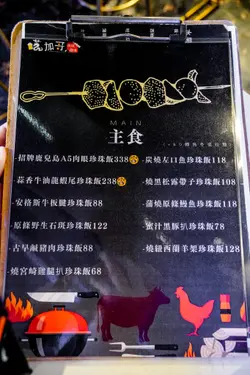 MAIN
主食
-招牌鹿兒島A5肉眼珍珠飯238
-蒜香牛油龍蝦尾珍珠飯238
-安格斯牛板腱珍珠飯88
-原條野生石斑珍珠飯122
-古早鹹豬肉珍珠飯88
-燒宮崎雞腿扒珍珠飯68
-炭燒左口魚珍珠飯118
-燒黑松露帶子珍珠飯108
-蒲燒原條鰻魚珍珠飯118
-蜜汁黑豚扒珍珠飯78
-燒紐西蘭羊架珍珠飯128